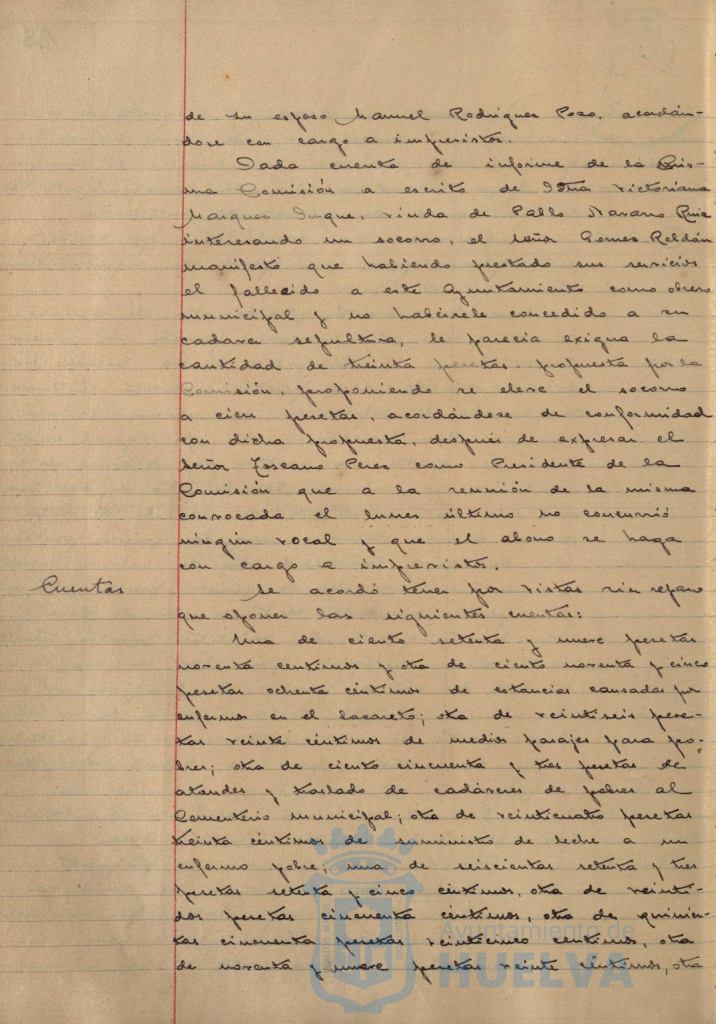 de su esposo Manuel Rodriguez Pozo, acordán-
dose con cargo a imprevistos.
Dada cuenta de informe de la mis-
ma Comisión a escrito de Dña Victoriana
Marquez Duque, viuda de Pablo Navarro Ruiz
interesando un socorro, el señor Gomez Roldán
manifestó que habiendo prestado sus servicios
el fallecido a este Ayuntamiento como obrero
municipal y no habérsele concedido a su
cadaver sepultura, le parecia exigua la
cantidad de treinta pesetas propuesta por la
Comisión, proponiendo se eleve el socorro
a cien pesetas, acordándose de conformidad
con dicha propuesta, después de expresar el
señor Toscano Perez como Presidente de la
Comisión que a la reunión de la misma
convocada el lunes último no concurrió
ningún vocal y que el abono se haga
con cargo a imprevistos.
Cuentas
Se acordó tener por vistas sin reparo
que oponer las siguientes cuentas:
Una de ciento setenta y nueve pesetas
noventa centimos y otra de ciento noventa y cinco
pesetas ochenta céntimos de estancias causadas por
enfermos en el Lazareto; otra de veintiseis pese-
tas veinte céntimos de medios pasajes para po-
bres; otra de ciento cincuenta y tres pesetas de
ataudes y traslado de cadáveres de pobres al
Cementerio municipal; otra de veinticuatro pesetas
treinta céntimos de suministro de leche a un
enfermo pobre; una de seiscientas setenta y tres
pesetas setenta y cinco centimos, otra de veinti-
dos pesetas cincuenta céntimos, otra de quinien-
tas cincuenta pesetas veinticinco centimos, otra
de noventa y nueve pesetas veinte céntimos, otra
Ayuntamiento de
HUELVA